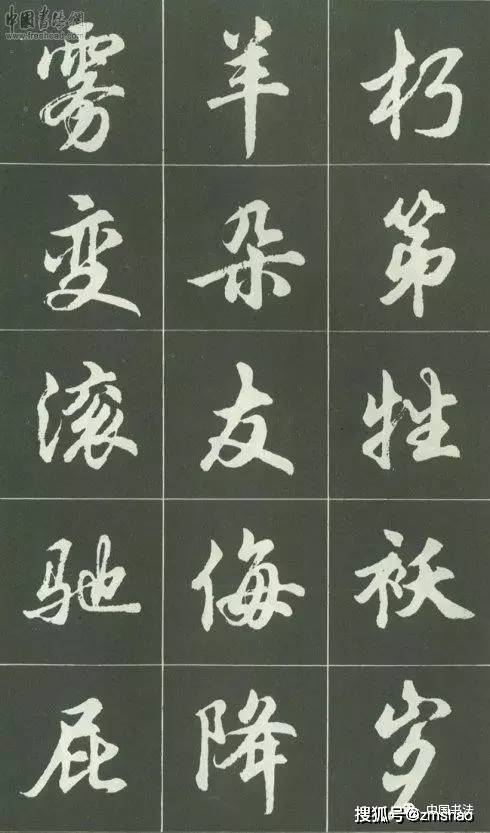 中國書法網
www.freehead.com
朽第牲袄岁
羊朵友侮降
雾变滚驰屁
中国书法
搜狐号@zmshao